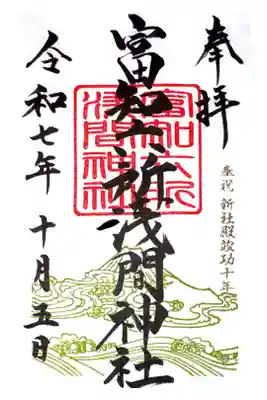 奉拝
奉祝 新社殿竣功十年
富知六所浅間神社
富知六所
浅間神社
令和七年 十月五日